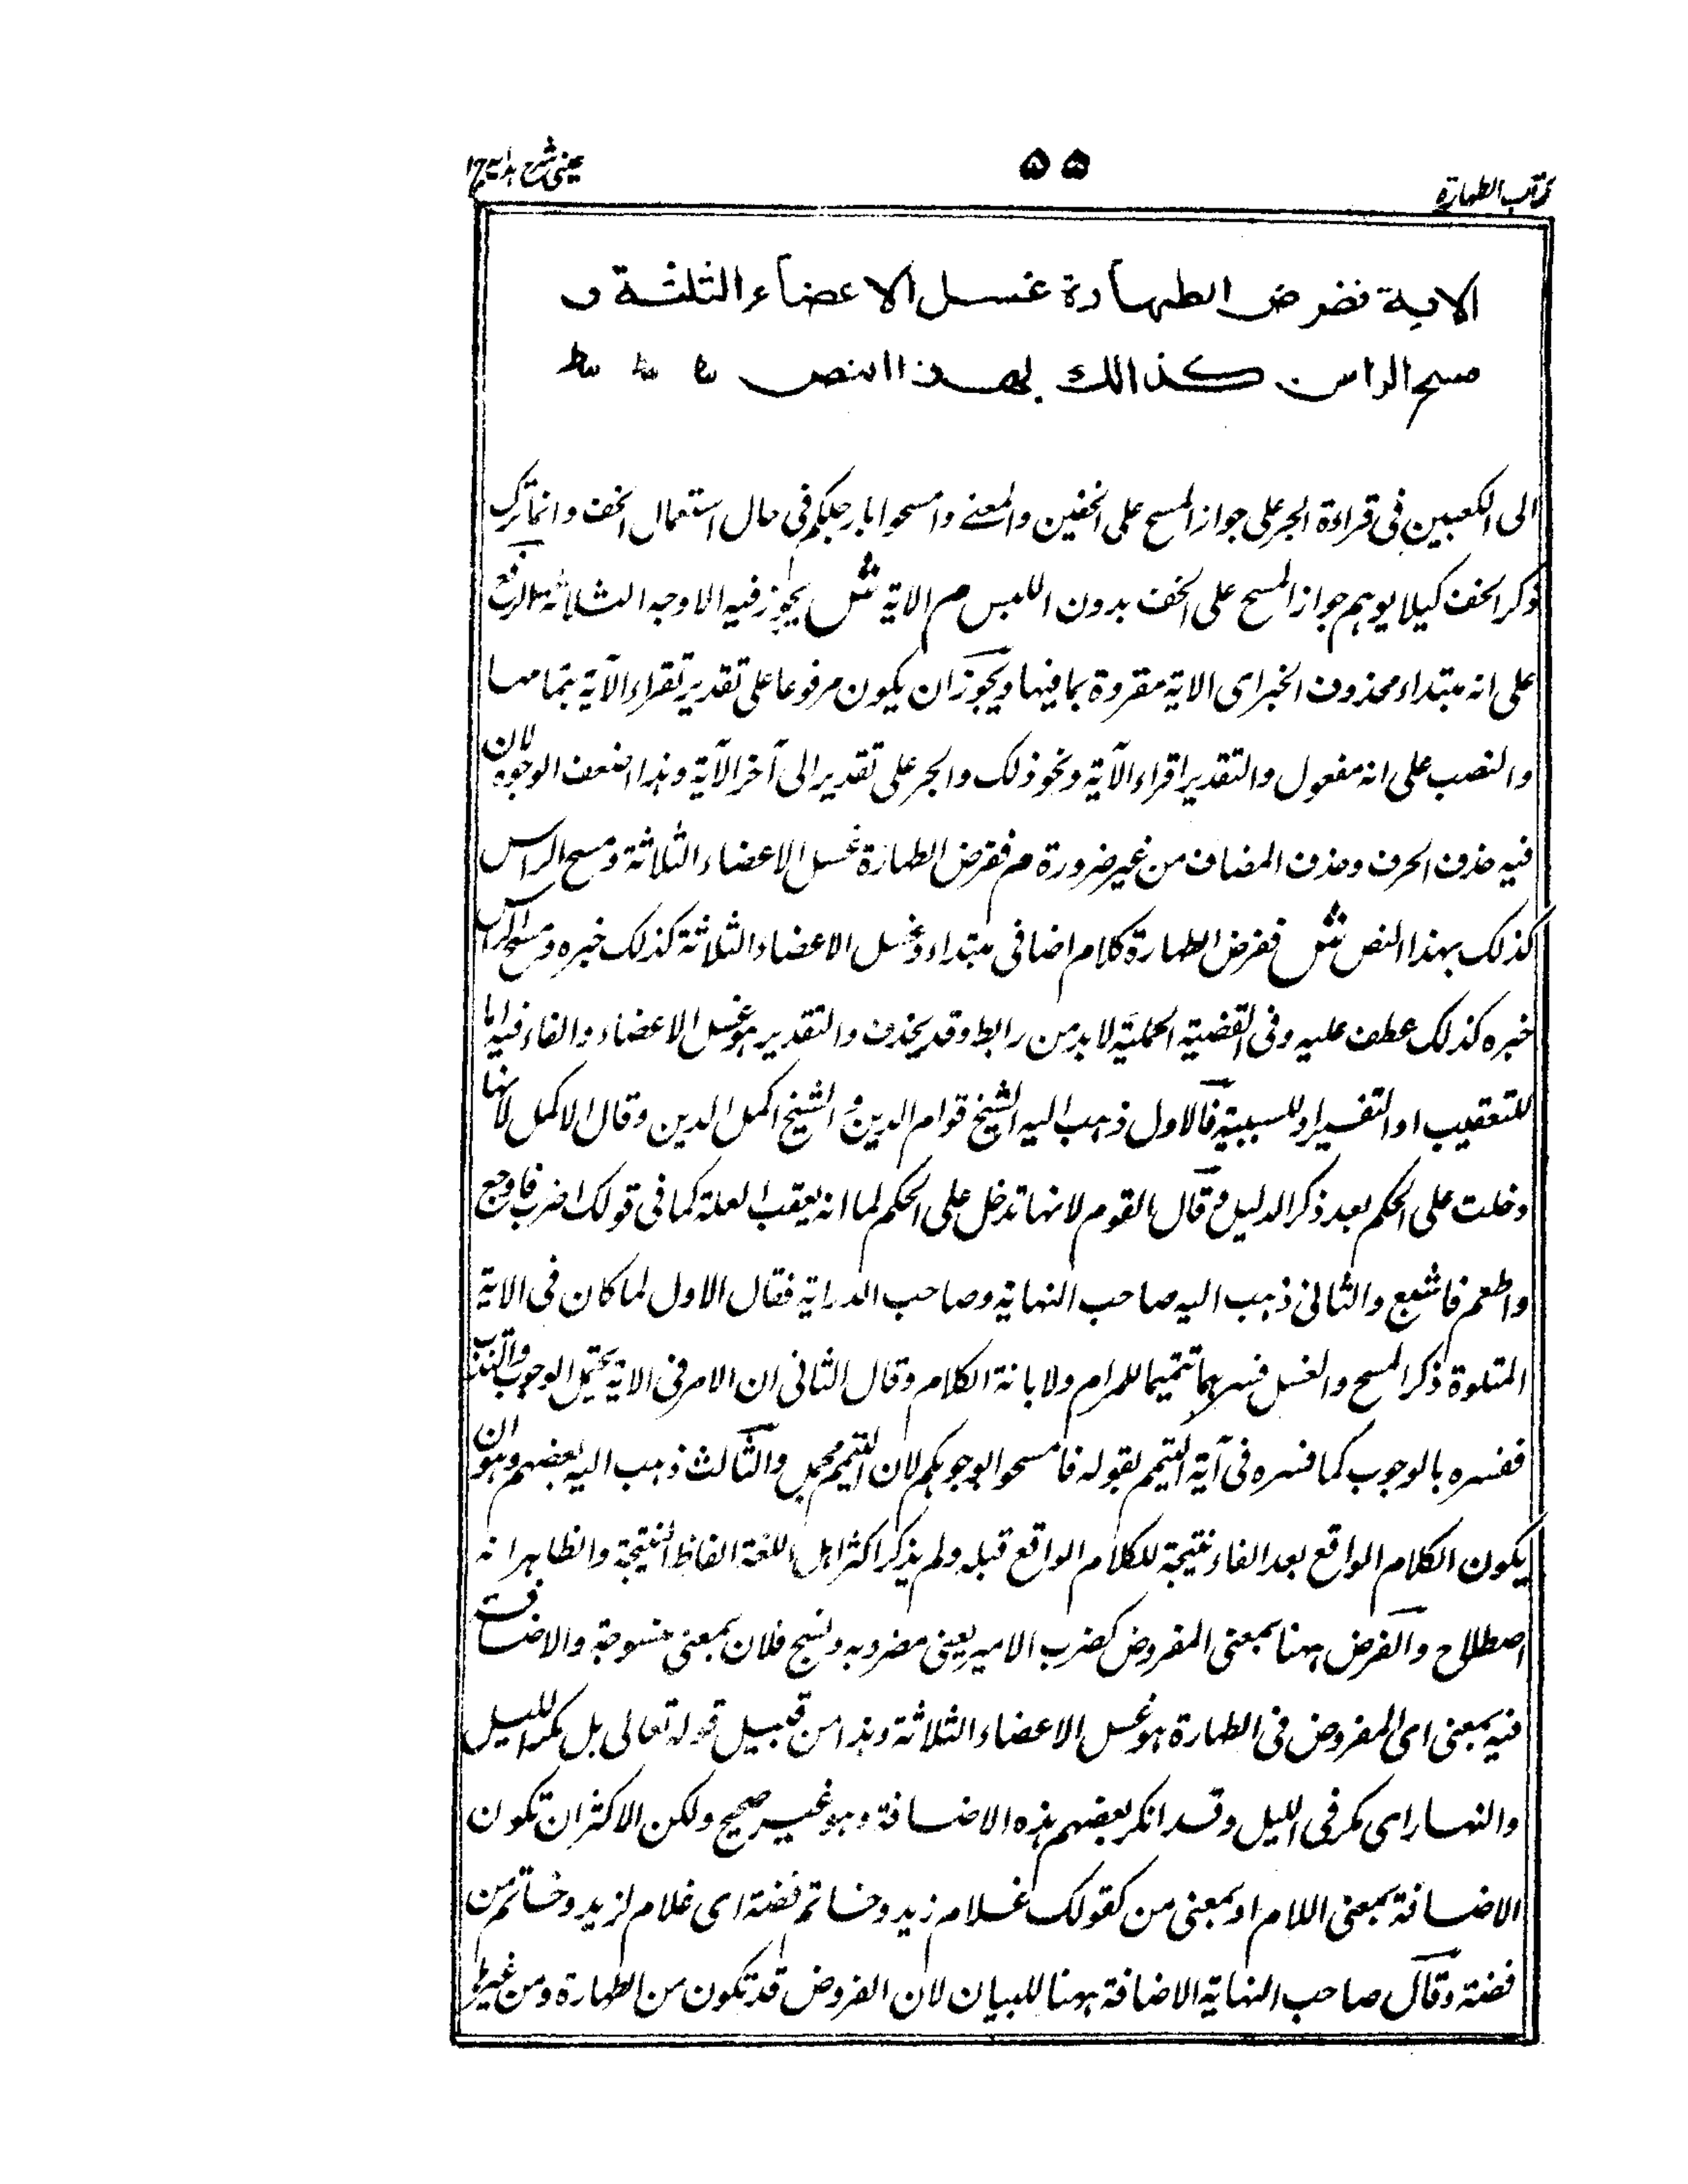 كتاب الطهارة
۵۵
عينى شرح هداية ج۱
الاية ففرض الطهارة غسل الاعضاء الثلثة و
مسح الراس كذالك بهذا النص
الى الكعبين فى قراءة الجر على جواز المسح على الخفين والمعنے وامسحوا بارجلكم فى حال استعمال الخف وانما ترك
ذكر الخف كيلا يوهم جواز المسح على الخف بدون اللبس م الاية ش يجوز فيه الاوجه الثلاثة الرفع
على انه مبتداء محذوف الخبر اى الاية مقروة بما فيها ويجوز ان يكون مرفوعا على تقدير تقراء الآية بتمامها
والنصب على انه مفعول والتقدير اقراء الآية ونحو ذلك والجر على تقدير الى آخر الآية وهذا اضعف الوجوه لان
فيه حذف الحرف وحذف المضاف من غير ضرورة م ففرض الطهارة غسل الاعضاء الثلاثة ومسح الراس
كذلك بهذا النص ش ففرض الطهارة كلام اضافى مبتداء وغسل الاعضاء الثلاثة كذلك خبره ومسح الراس
خبره كذلك عطف عليه وفى القضية الحملية لا بد من رابط وقد يحذف والتقدير هو غسل الاعضاء والفاء فيه اما
للتعقيب او التفسير او للسببية فالاول ذهب اليه الشيخ قوام الدين والشيخ اكمل الدين وقال الاكمل لانها
دخلت على الحكم بعد ذكر الدليل وقال القوم لانها تدخل على الحكم لما انه يعقب العلة كما فى قولك اضرب فاوجع
واطعم فاشبع والثانى ذهب اليه صاحب النهاية وصاحب الدراية فقال الاول لما كان فى الاية
المتلوة ذكر المسح والغسل فسرهما تتميما للمرام ولابانة الكلام وقال الثانى ان الامر فى الاية يحتمل الوجوب والندب
ففسره بالوجوب كما فسره فى آية التيمم لقوله فامسحوا بوجوهكم لان التيمم مجمل والثالث ذهب اليه بعضهم وهو ان
يكون الكلام الواقع بعد الفاء نتيجة للكلام الواقع قبله ولم يذكر اكثر اهل اللغة الفاظ النتيجة والظاهر انه
اصطلاح والفرض ههنا بمعنى المفروض كضرب الامير يعنى مضروبه ونسج فلان بمعنى منسوجة والاضافة
فيه بمعنى اى المفروض فى الطهارة هو غسل الاعضاء الثلاثة وهذا من قبيل قوله تعالى بل مكر الليل
والنهار اى مكر فى الليل وقد انكر بعضهم هذه الاضافة وهو غير صحيح ولكن الاكثر ان تكون
الاضافة بمعنى اللام او بمعنى من كقولك غلام زيد وخاتم فضة اى غلام لزيد وخاتم من
فضة وقال صاحب النهاية الاضافة ههنا للبيان لان الفروض قد تكون من الطهارة ومن غير